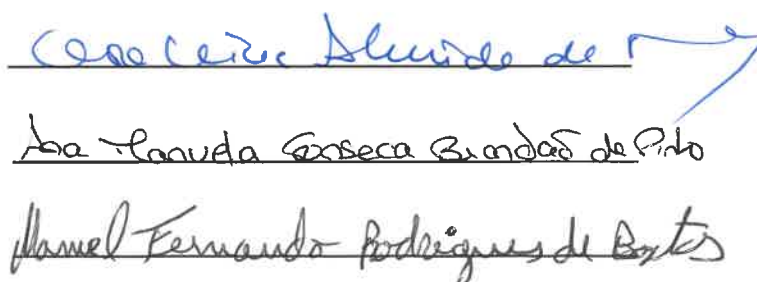 Almeida de
Ana Manuela Fonseca Brandão de Pinto
Manuel Fernando Rodrigues de Bastos